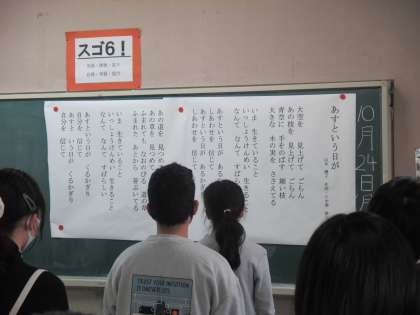 スゴ6!
10月24日月
あすという日が
大空を 見上げて ごらん
あの枝を 見上げて ごらん
青空に 手をのばす 細い枝
大きな 木の実を ささえてる
いま 生きていること
いっしょうけんめい 生きる
なんて なんて すばら
あすという日が
しあわせを 信じて
あすという日が
しあわせを 信じて
あの道を 見つめ
あの草を 見つめ
ふまれても なおのびる 道の
ふまれた あとから 芽ぶいてる
いま 生きていること
いっしょうけんめい 生きること
なんて なんて すばらしい
あすという日が くるかぎり
自分を 信じて
あすという日が くるかぎり
自分を 信じて
TRUST YOUR INTUITION